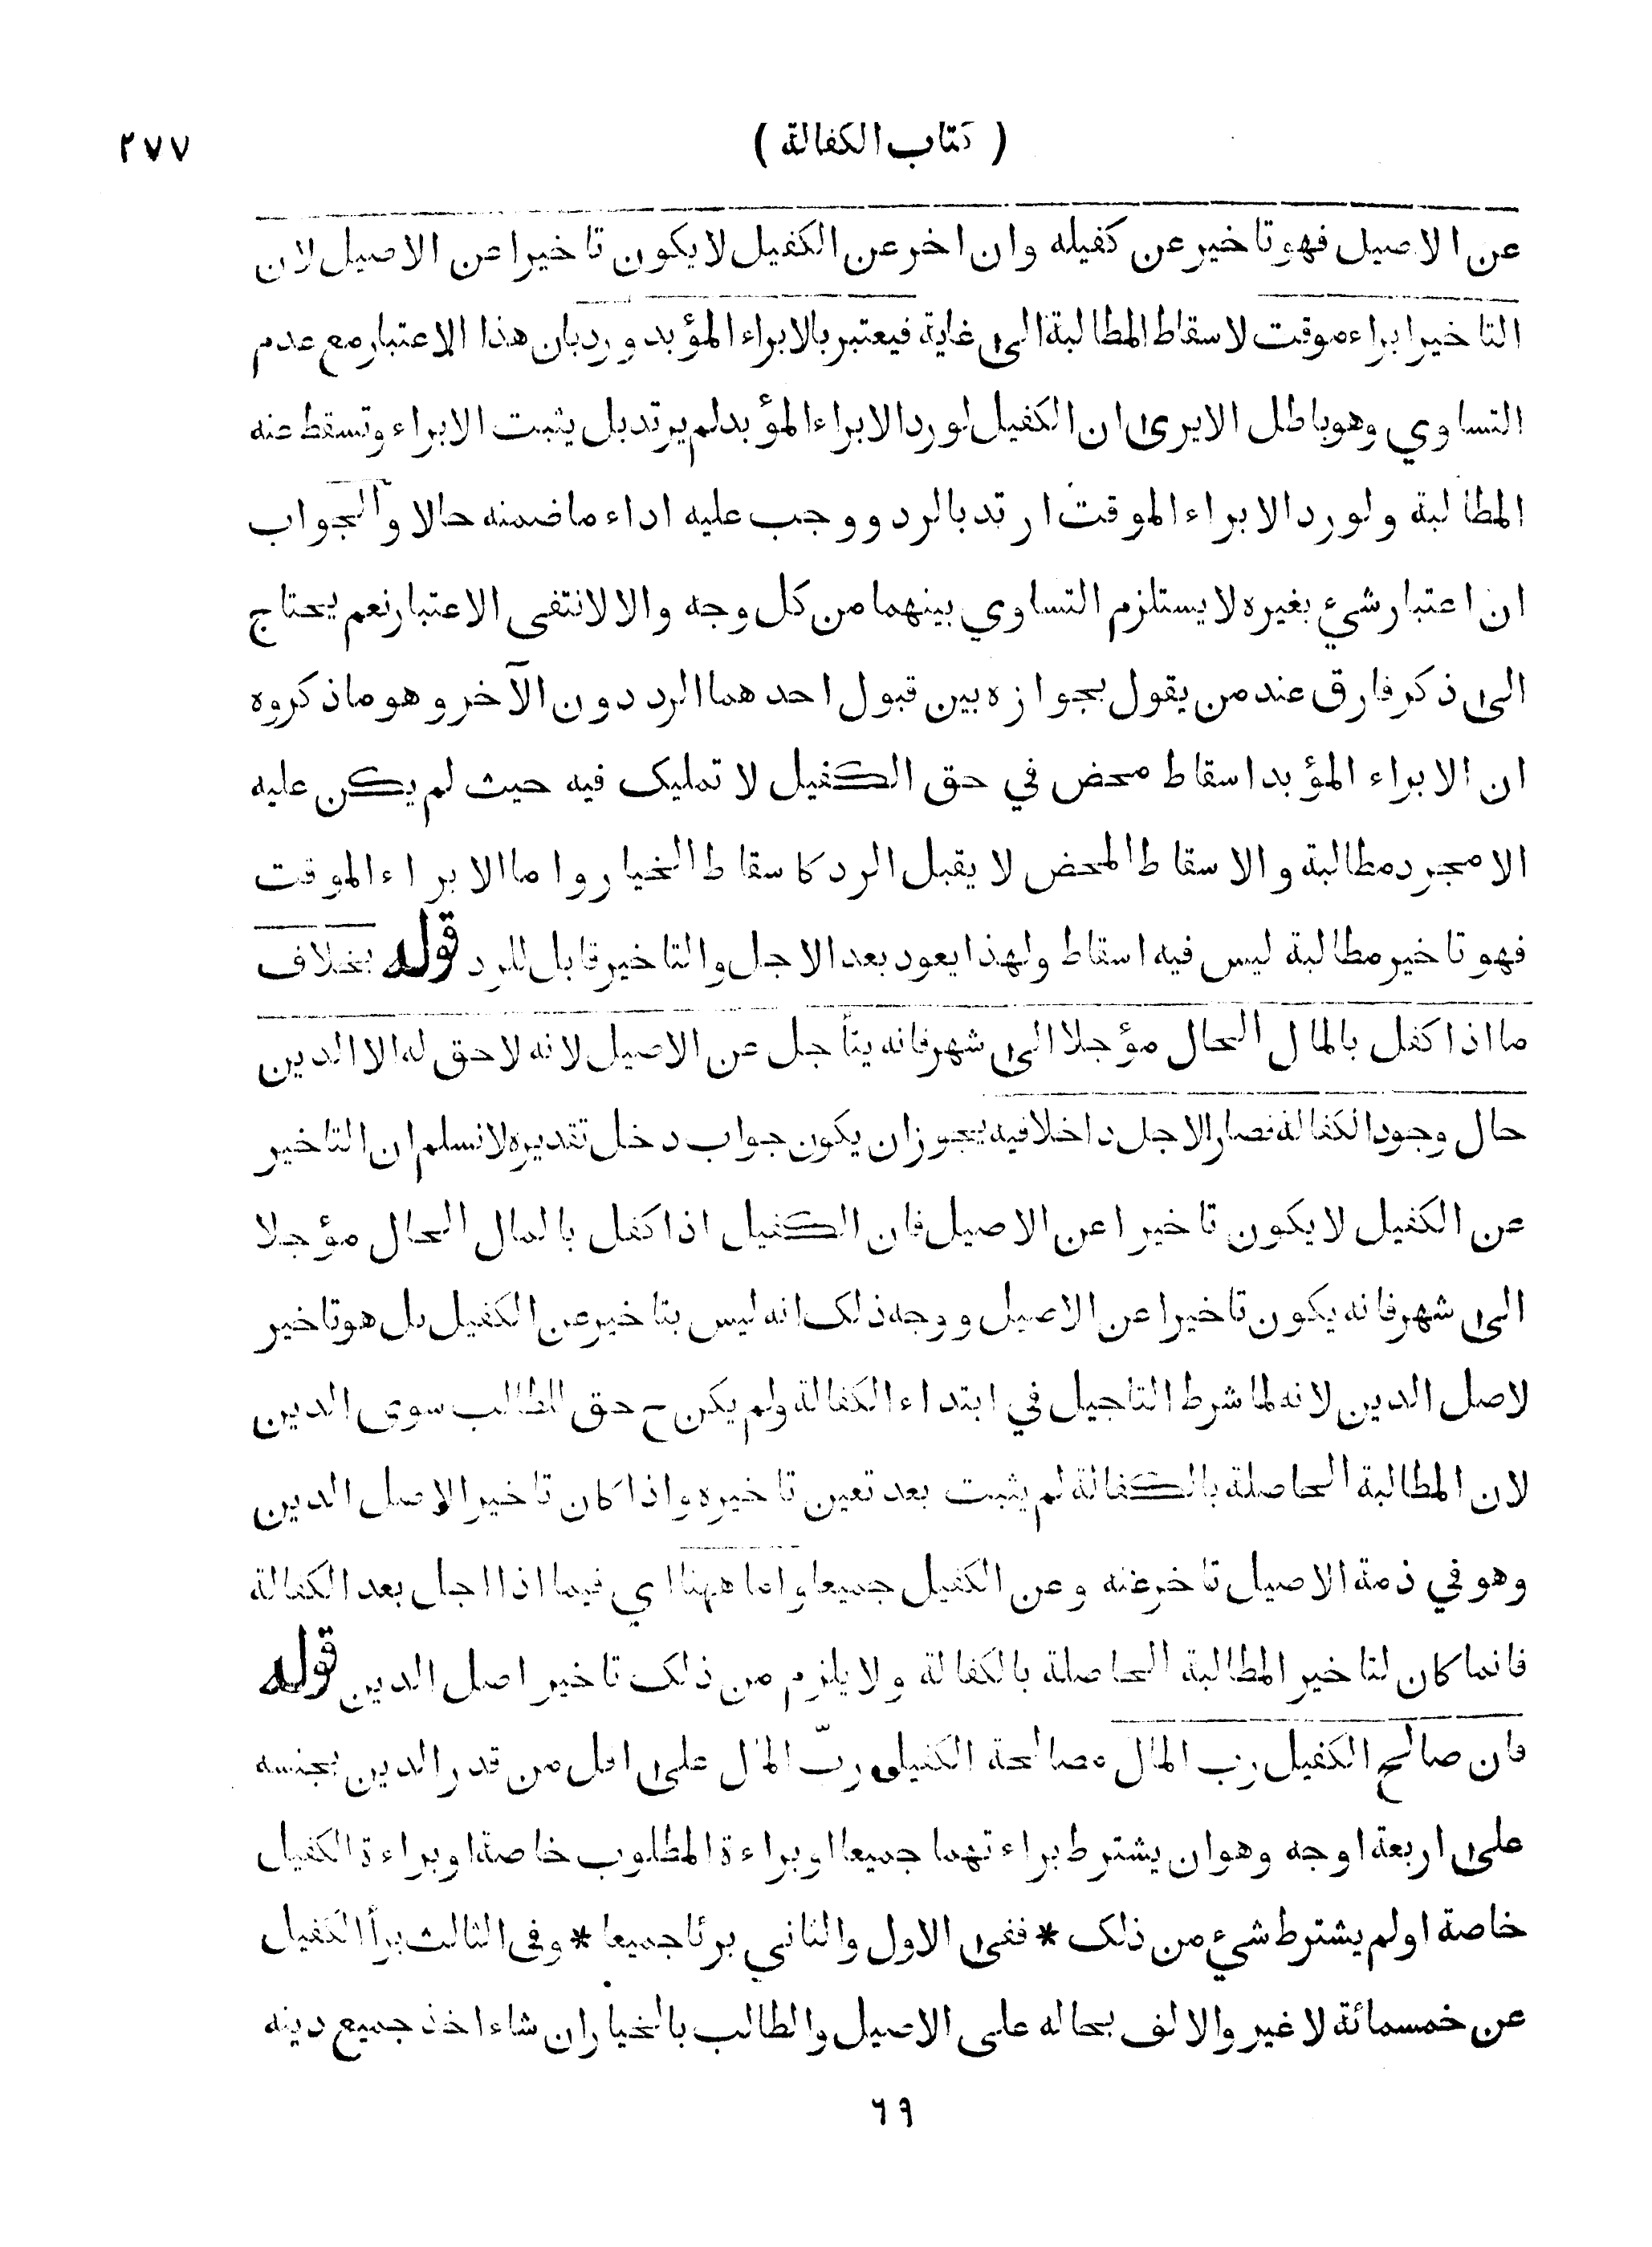 ( كتاب الكفالة )
٢٧٧
عن الاصيل فهو تاخير عن كفيله وان اخر عن الكفيل لا يكون تاخيرا عن الاصيل لان
التاخير ابراء موقت لاسقاط المطالبة الى غاية فيعتبر بالابراء المؤبد ورد بان هذا الاعتبار مع عدم
التساوي وهو باطل الا يرى ان الكفيل لو رد الابراء المؤبد لم يرتد بل يثبت الابراء وتسقط عنه
المطالبة ولو رد الابراء الموقت ارتد بالرد ووجب عليه اداء ما ضمنه حالا والجواب
ان اعتبار شيء بغيره لا يستلزم التساوي بينهما من كل وجه والا لانتفى الاعتبار نعم يحتاج
الى ذكر فارق عند من يقول بجوازه بين قبول احدهما الرد دون الآخر وهو ما ذكروه
ان الابراء المؤبد اسقاط محض في حق الكفيل لا تمليك فيه حيث لم يكن عليه
الا مجرد مطالبة والاسقاط المحض لا يقبل الرد كاسقاط الخيار واما الابراء الموقت
فهو تاخير مطالبة ليس فيه اسقاط ولهذا يعود بعد الاجل والتاخير قابل للرد قوله بخلاف
ما اذا كفل بالمال الحال مؤجلا الى شهر فانه يتأجل عن الاصيل لانه لا حق له الا الدين
حال وجود الكفالة فصار الاجل داخلا فيه يجوز ان يكون جواب دخل تقديره لا نسلم ان التاخير
عن الكفيل لا يكون تاخيرا عن الاصيل فان الكفيل اذا كفل بالمال الحال مؤجلا
الى شهر فانه يكون تاخيرا عن الاصيل ووجه ذلك انه ليس بتاخير عن الكفيل بل هو تاخير
لاصل الدين لانه لما شرط التاجيل في ابتداء الكفالة ولم يكن ح حق الطالب سوى الدين
لان المطالبة الحاصلة بالكفالة لم يثبت بعد تعين تاخيره واذا كان تاخيرا لاصل الدين
وهو في ذمة الاصيل تاخر عنه وعن الكفيل جميعا واما ههنا اي فيما اذا اجل بعد الكفالة
فانما كان لتاخير المطالبة الحاصلة بالكفالة ولا يلزم من ذلك تاخير اصل الدين قوله
فان صالح الكفيل رب المال مصالحة الكفيل ربّ المال على اقل من قدر الدين بجنسه
على اربعة اوجه وهو ان يشترط براءتهما جميعا او براءة المطلوب خاصة او براءة الكفيل
خاصة او لم يشترط شيء من ذلك * ففى الاول والثاني برئا جميعا * وفى الثالث برأ الكفيل
عن خمسمائة لا غير والالف بحاله على الاصيل والطالب بالخيار ان شاء اخذ جميع دينه
٦٩